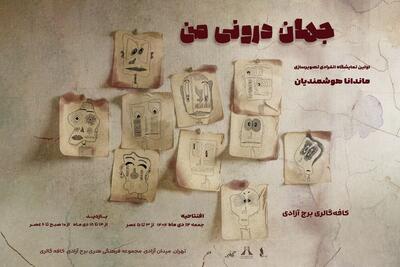 جهان درونی من
اولین نمایشگاه انفرادی تصویرسازی
ماندانا هوشمندیان
کافه‌گالری برج آزادی
افتتاحیه
جمعه ۱۲ دی ماه ۱۴۰۴ از ۳ تا ۵ عصر
بازدید
از ۱۳ تا ۱۸ دی ماه ـ ۱۰ صبح تا ۶ عصر
تهران، میدان آزادی، مجموعه فرهنگی هنری برج آزادی، کافه گالری